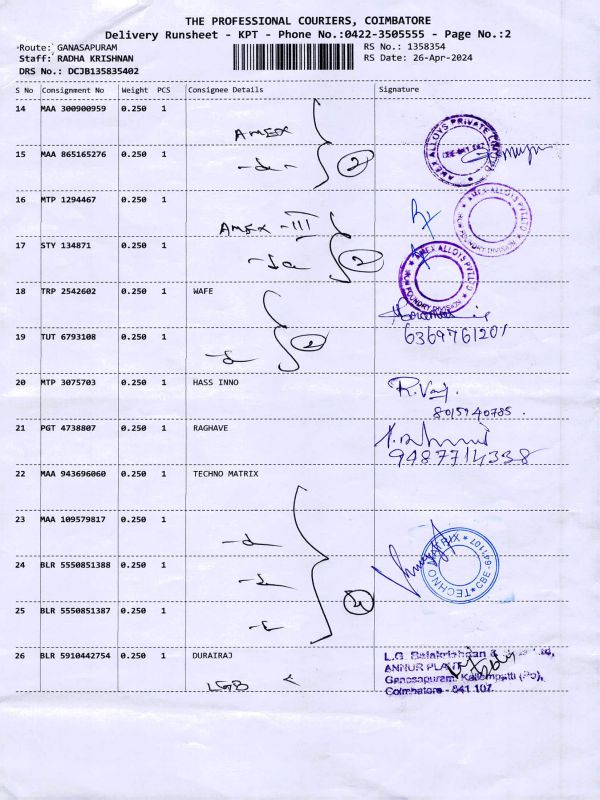 THE PROFESSIONAL COURIERS, COIMBATORE
Delivery Runsheet - KPT - Phone No.:0422-3505555 - Page No.:2
Route: GANASAPURAM
RS No.: 1358354
Staff: RADHA KRISHNAN
RS Date: 26-Apr-2024
DRS No.: DCJB135835402
S No Consignment No Weight PCS Consignee Details Signature
14 MAA 300900959 0.250 1
AMEX
15 MAA 865165276 0.250 1
2
AMEX ALLOYS PRIVATE
16 MTP 1294467 0.250 1
AMEX - III
AMEX ALLOYS PVT LTD
FOUNDRY DIVISION
17 STY 134871 0.250 1
2
AMEX ALLOYS PVT LTD
FOUNDRY DIVISION
18 TRP 2542602 0.250 1 WAFE
6369761201
19 TUT 6793108 0.250 1
2
20 MTP 3075703 0.250 1 HASS INNO
8015940785
21 PGT 4738807 0.250 1 RAGHAVE
9487714338
22 MAA 943696060 0.250 1 TECHNO MATRIX
23 MAA 109579817 0.250 1
TECHNO MATRIX
CBE-641107
24 BLR 5550851388 0.250 1
25 BLR 5550851387 0.250 1
4
26 BLR 5910442754 0.250 1 DURAIRAJ
LGB
L.G. Balakrishnan &
ANNUR PLANT
Ganesapuram, Kattampatti (Po),
Coimbatore - 641 107.